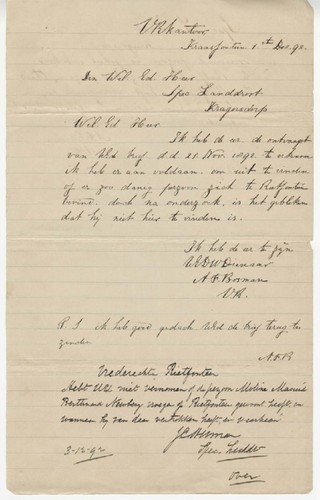 V.K. kantoor
Fransfontein 1ste Dec. 98.
Den Wel Ed Heer
Spec Landdrost
Krugersdorp
Wel Ed Heer
Ik heb de eer de ontvangst
van Uwd brief d.d. 25 Nov. 1898 te erkennen
Ik heb er aan voldaan om uit te vinden
of er zoo danig persoon zich te Rietfontein
bevind, doch na onderzoek, is het gebleken
dat hij niet hier te vinden is.
Ik heb de eer te zijn
UEDW Dienaar
A F Bosman
V.K.
P. S. Ik heb goed gedacht Uwd de brief terug te
zende.
A.F.B
Vrederechter Rietfontein
Hebt UEd niet vernomen of de persoon
Newbery Rietfontein gewoond heeft, en
wanneer hij van daar vertrokken heeft, en waarheen
Spec. Landdr
3-12-98
over